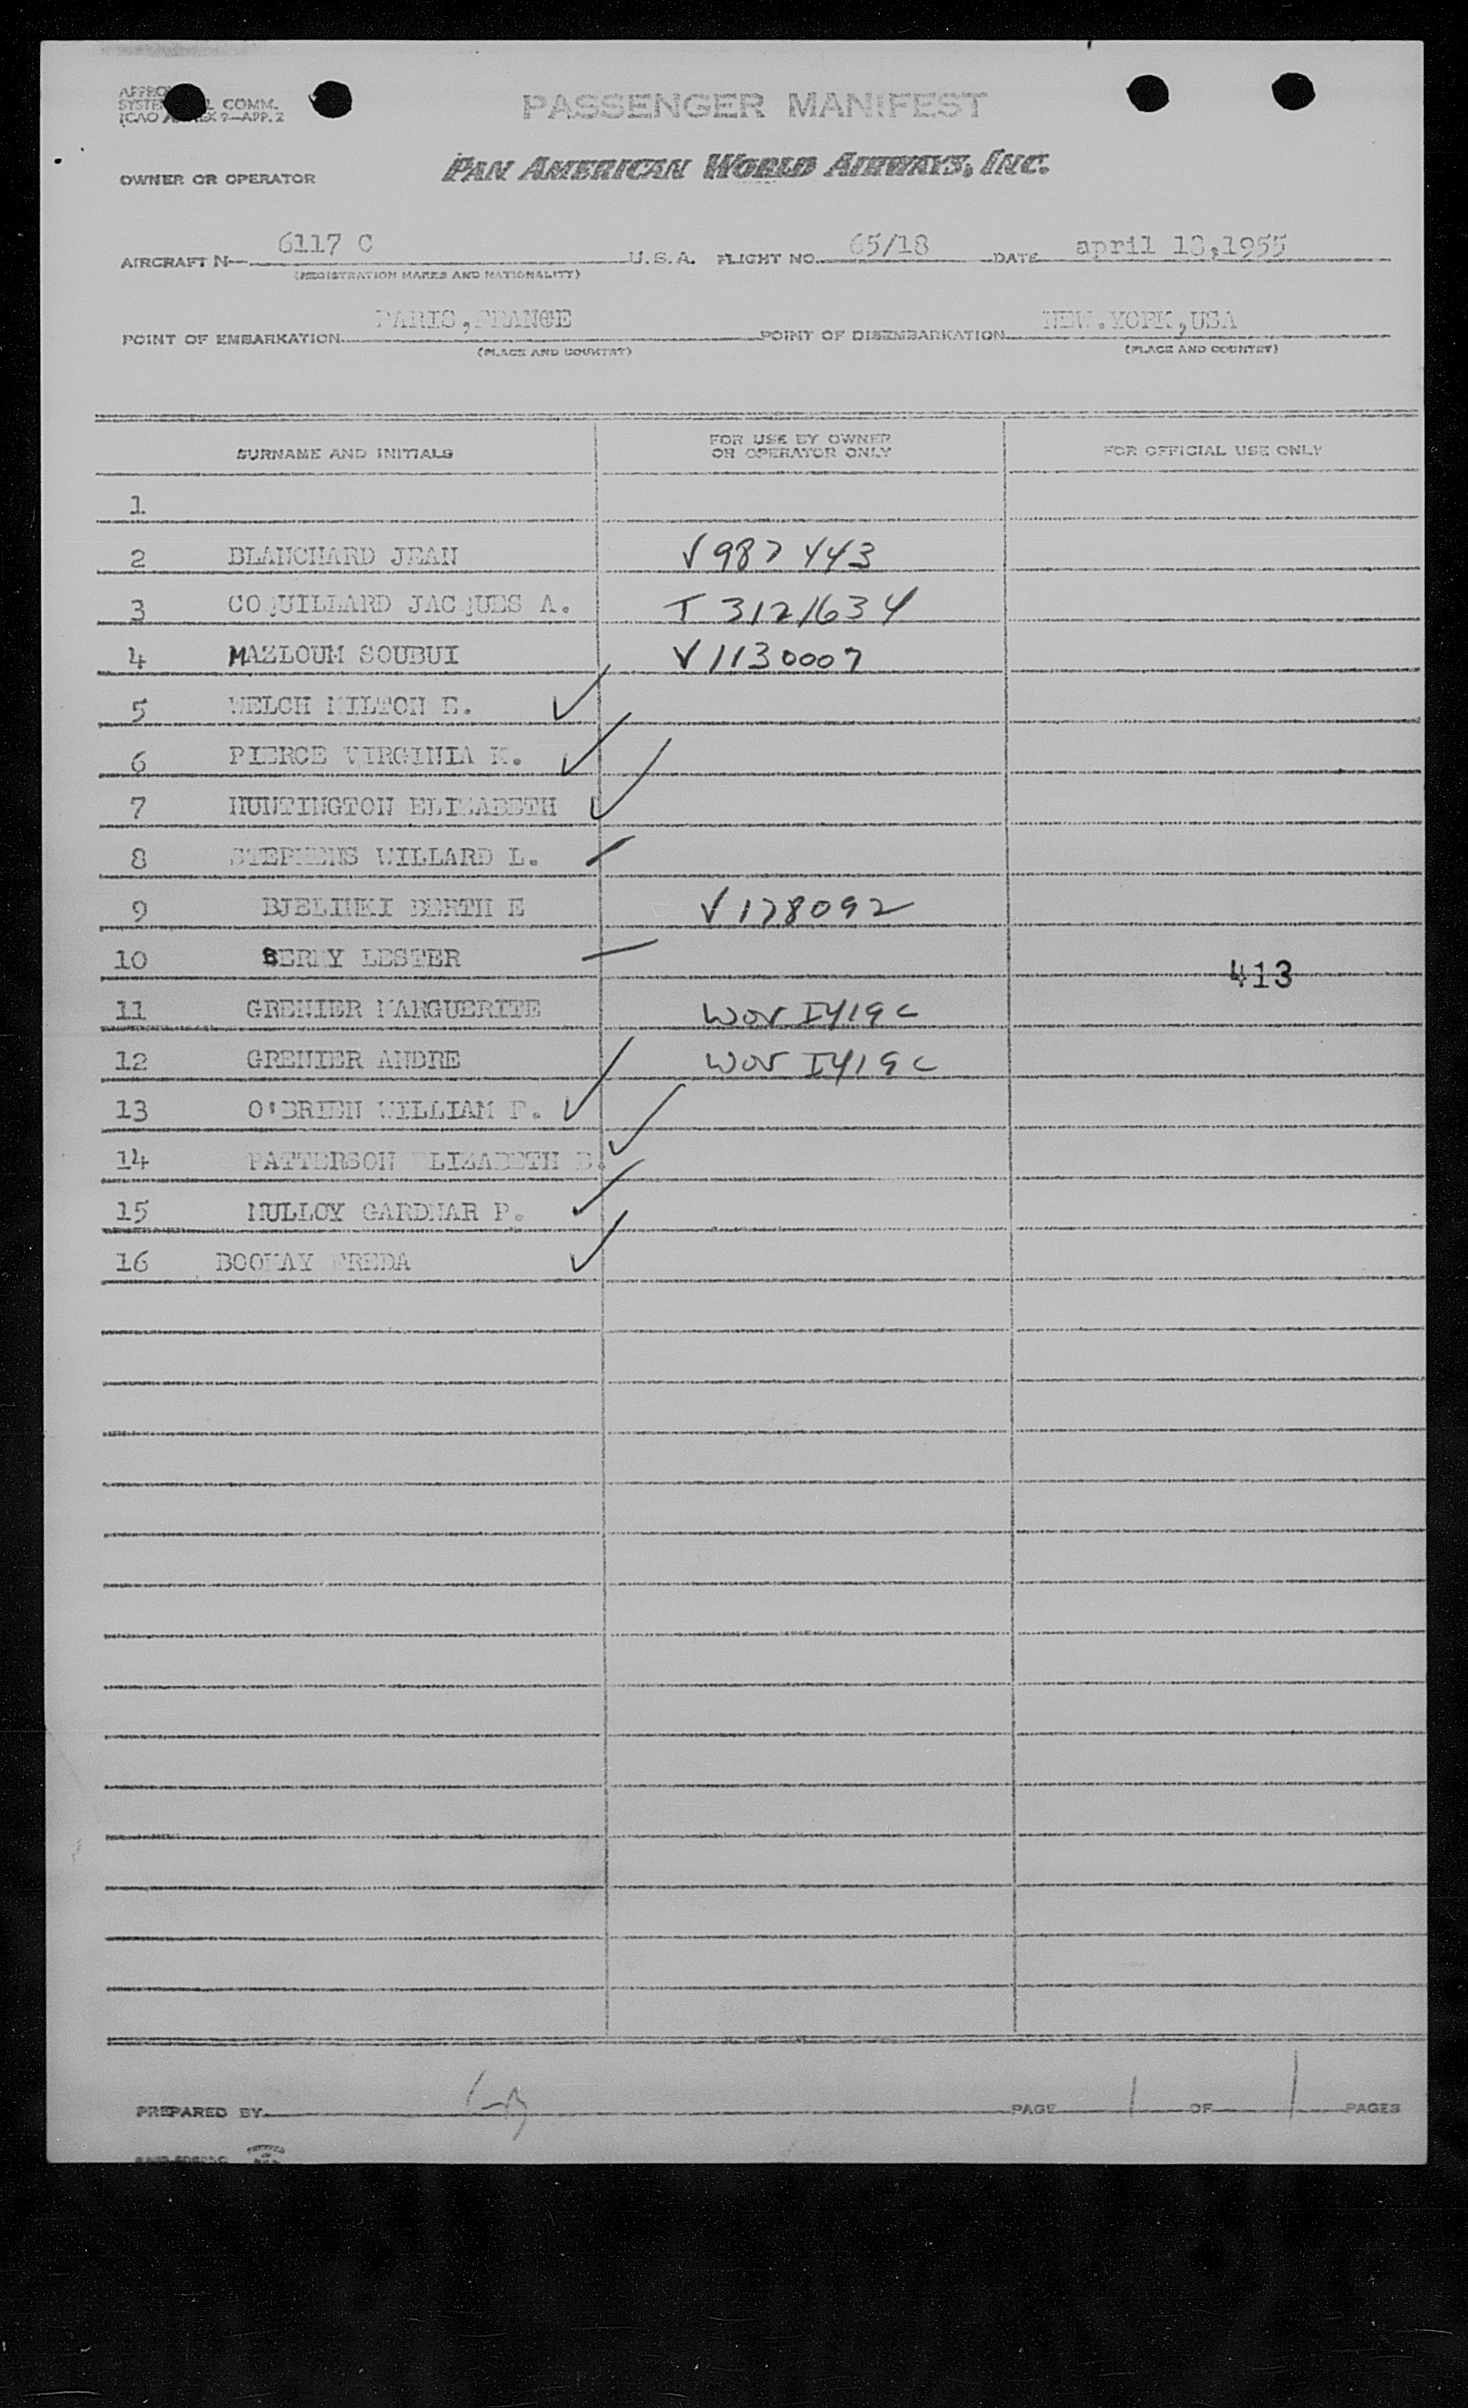 SYSTE L COMM.
ICAO ANNEX 9—APP. 2
PASSENGER MANIFEST
PAN AMERICAN WORLD AIRWAYS, INC.
OWNER OR OPERATOR
AIRCRAFT N— 6117 C U.S.A. FLIGHT NO. 65/18 DATE april 18,1955
(REGISTRATION MARKS AND NATIONALITY)
POINT OF EMBARKATION PARIS,FRANCE POINT OF DISEMBARKATION NEW.YORK,USA
(PLACE AND COUNTRY) (PLACE AND COUNTRY)
SURNAME AND INITIALS FOR USE BY OWNER OR OPERATOR ONLY FOR OFFICIAL USE ONLY
1
2 BLANCHARD JEAN V987443
3 COQUILLARD JACQUES A. T 3121634
4 MAZLOUM SOUBUI V1130007
5 WELCH MILTON E. ✓
6 PIERCE VIRGINIA K. ✓
7 HUNTINGTON ELIZABETH ✓
8 STEPHENS WILLARD L.
9 BJELINKI BERTH E V178092
10 BERRY LESTER
413
11 GRENIER MARGUERITE WOV I419C
12 GRENIER ANDRE WOV I419C
13 O'BRIEN WILLIAM F. ✓
14 PATTERSON ELIZABETH B. ✓
15 MULLOY GARDNAR P. ✓
16 BOOKAY FREDA ✓
PREPARED BY PAGE 1 OF 1 PAGES